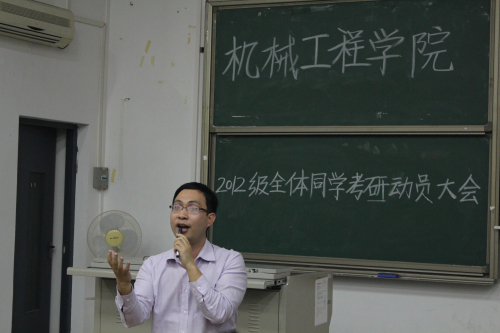 机械工程学院
2012级全体同学考研动员大会